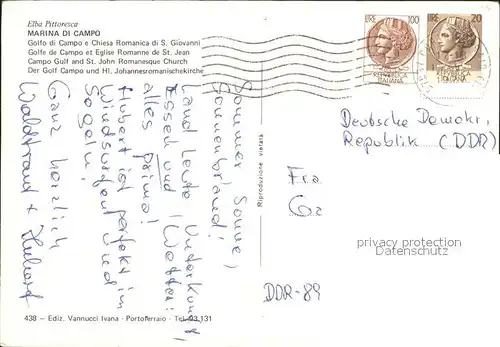 Elba Pittoresca
MARINA DI CAMPO
Golfo di Campo e Chiesa Romanica di S. Giovanni
Golfe de Campo et Eglise Romanne de St. Jean
Campo Gulf and St. John Romanesque Church
Der Golf Campo und Hl. Johannesromanischekirche
LIRE 100
REPUBBLICA
ITALIANA
LIRE 20
REPUBBLICA
ITALIANA
Sommer, Sonne,
Sonnenbrand!
Land, Leute, Unterkunft
Essen und (Wetter!
alles prima!
Hubert ist perfekt im
Windsurfen und
Segeln.
Ganz herzlich
Waldtraud + Hubert
Deutsche Demokr.
Republik (DDR)
Fra
Ga
Riproduzione vietata
privacy protection
DDR-89
438 - Ediz. Vannucci Ivana - Portoferraio - Tel. 93.131